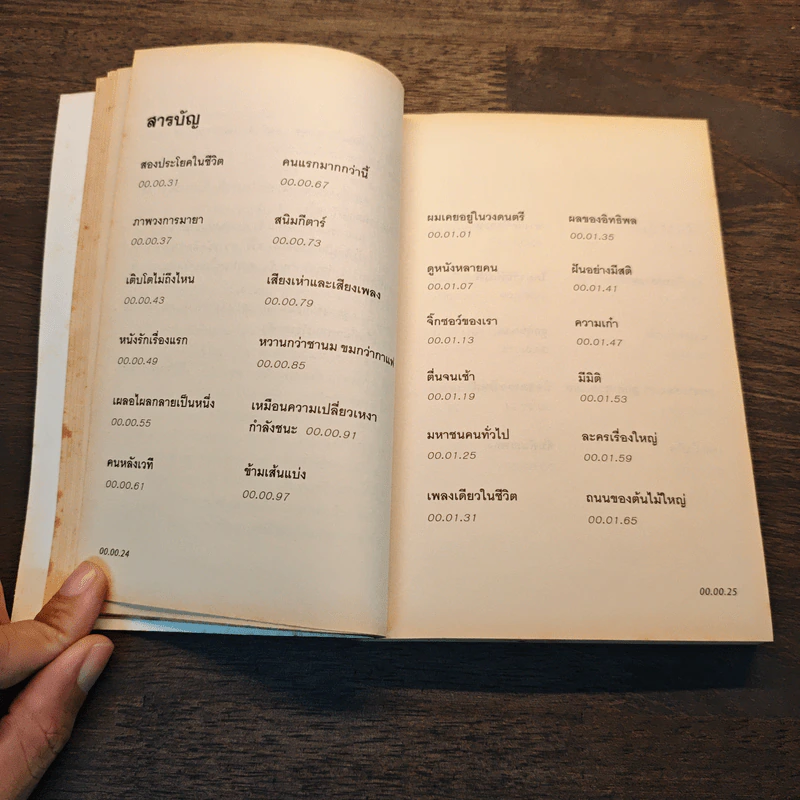 สารบัญ
สองประโยคในชีวิต
00.00.31
ภาพวงการมายา
00.00.37
เติบโตไม่ถึงไหน
00.00.43
หนังรักเรื่องแรก
00.00.49
เผลอไผลกลายเป็นหนึ่ง
00.00.55
คนหลังเวที
00.00.61
คนแรกมากกว่านี้
00.00.67
สนิมกีตาร์
00.00.73
เสียงเห่าและเสียงเพลง
00.00.79
หวานกว่าชานม ขมกว่ากาแฟ
00.00.85
เหมือนความเปลี่ยวเหงา
กำลังชนะ 00.00.91
ข้ามเส้นแบ่ง
00.00.97
00.00.24
ผมเคยอยู่ในวงดนตรี
00.01.01
ดูหนังหลายคน
00.01.07
จิ๊กซอว์ของเรา
00.01.13
ตื่นจนเช้า
00.01.19
มหาชนคนทั่วไป
00.01.25
เพลงเดียวในชีวิต
00.01.31
ผลของอิทธิพล
00.01.35
ฝันอย่างมีสติ
00.01.41
ความเก๋า
00.01.47
มีมิติ
00.01.53
ละครเรื่องใหญ่
00.01.59
ถนนของต้นไม้ใหญ่
00.01.65
00.00.25